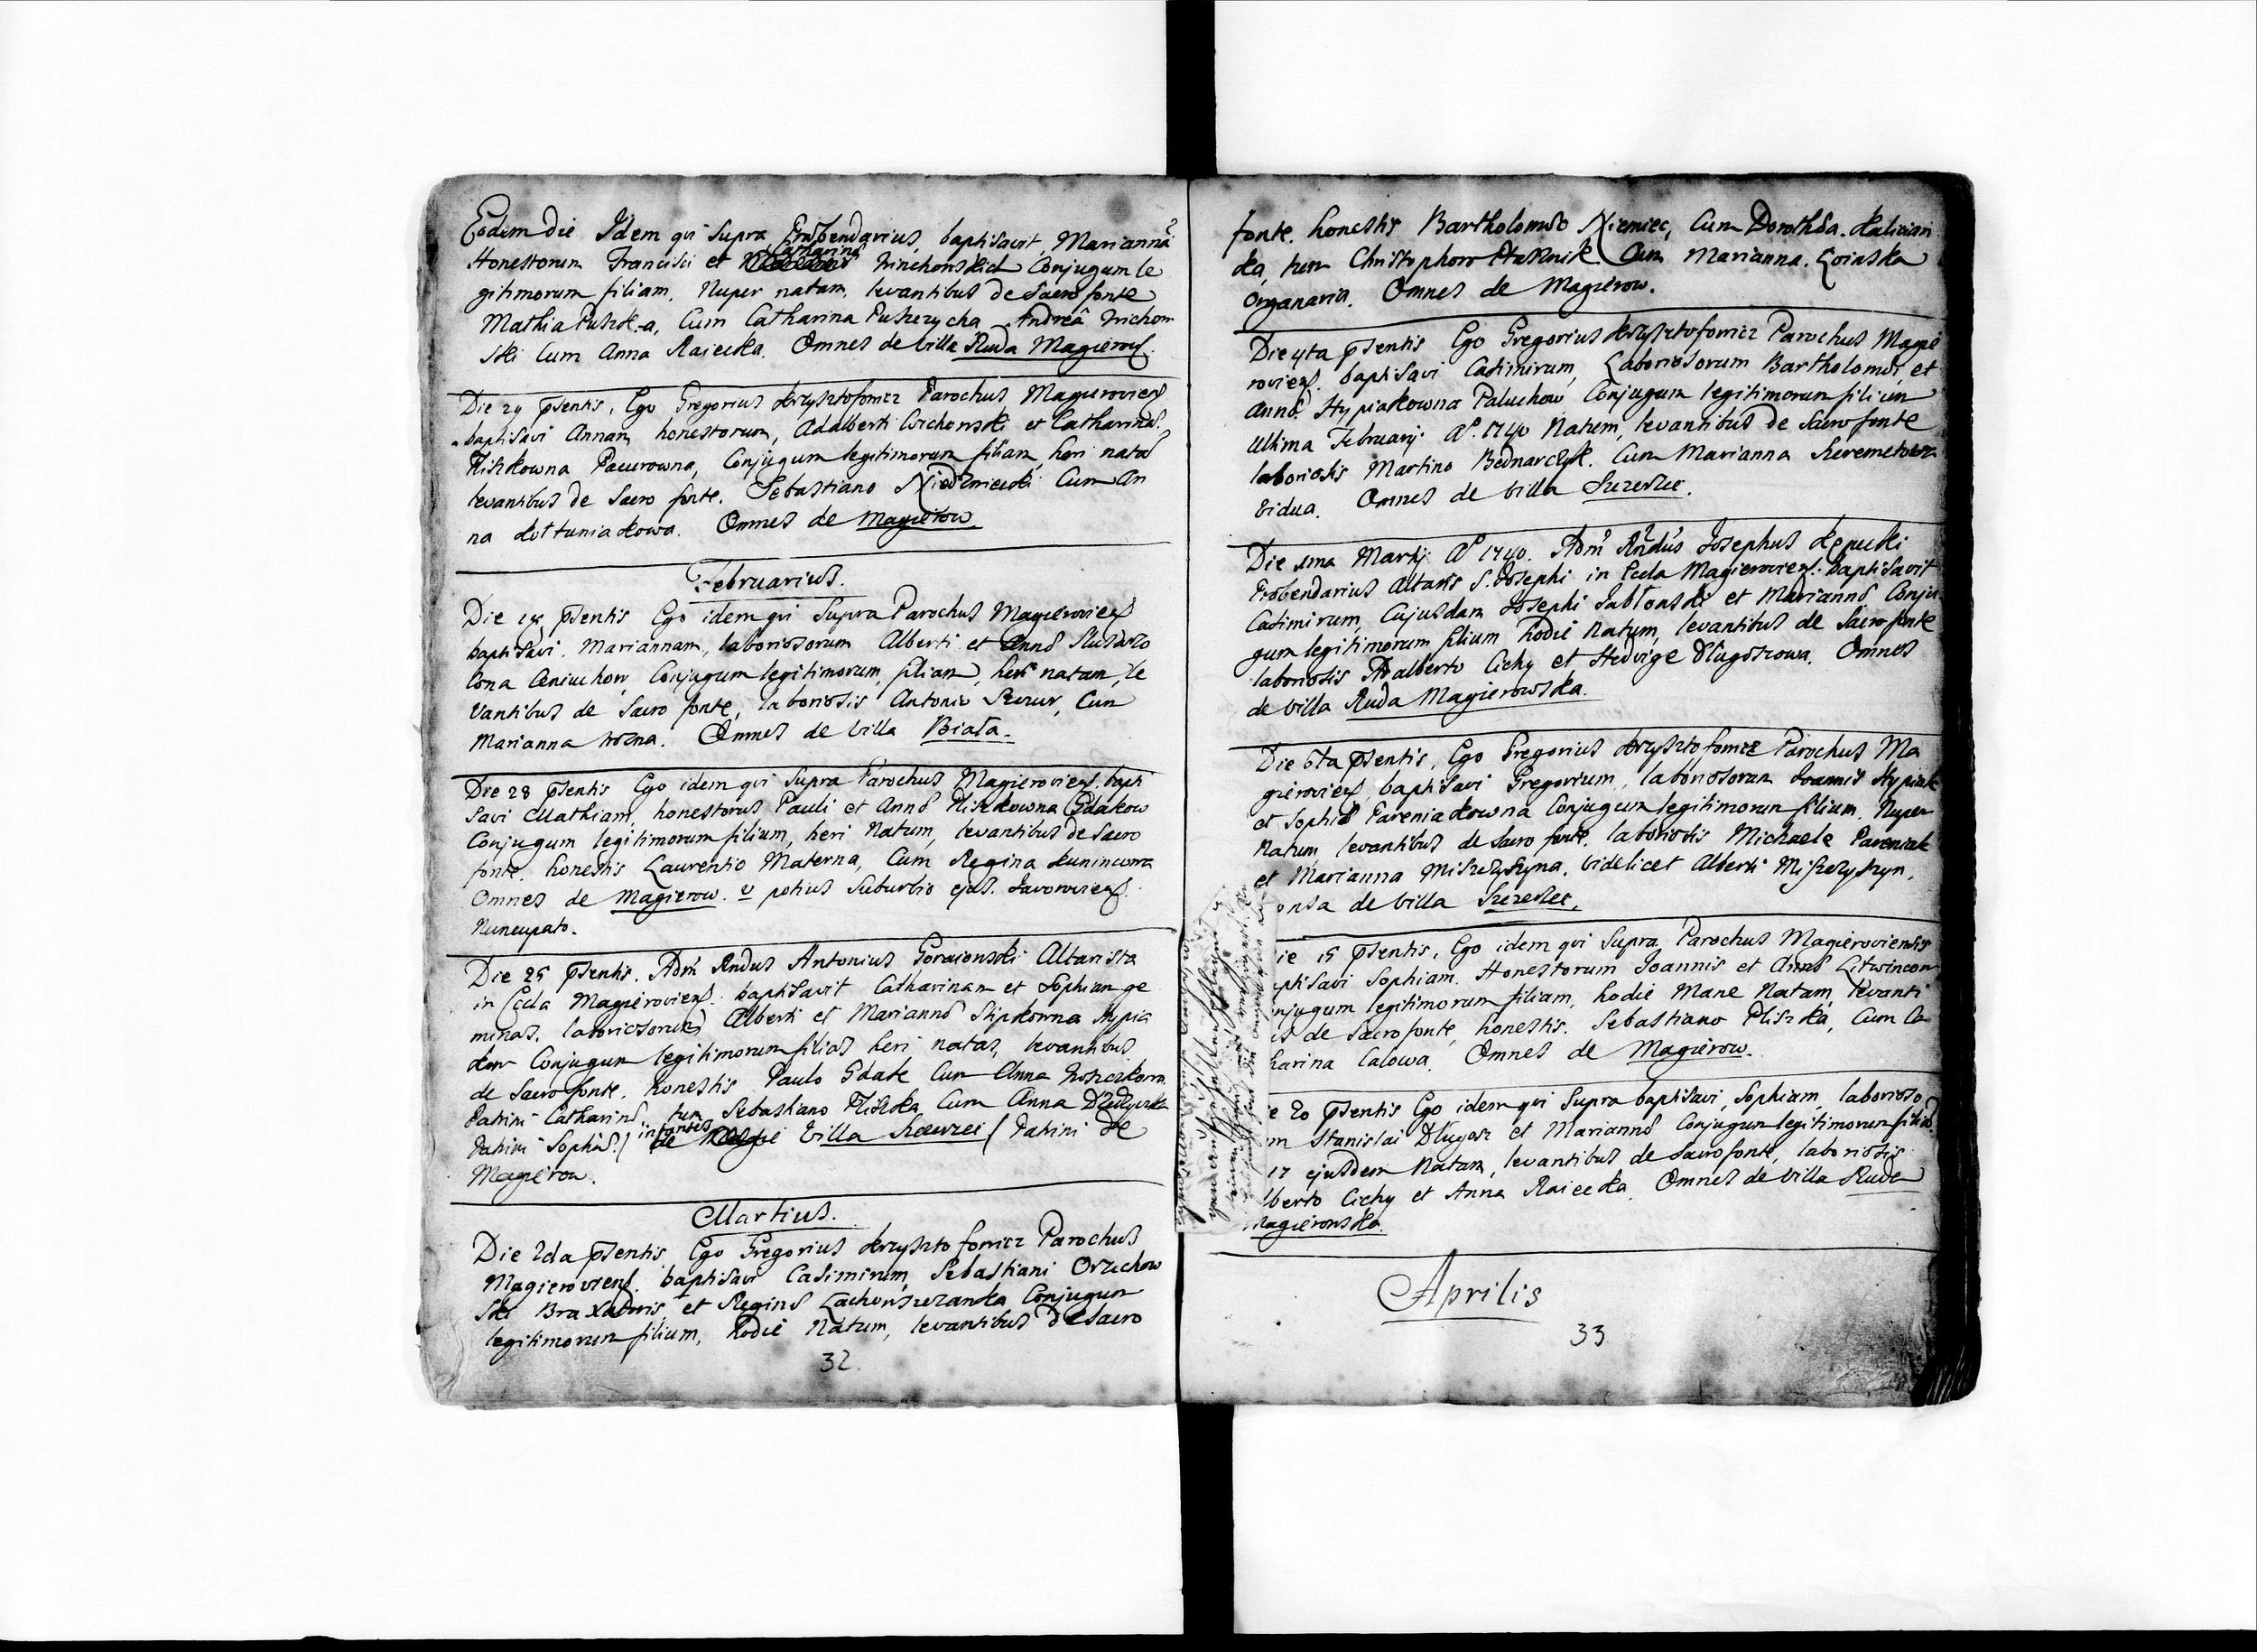 Eodem die Idem qui Supra Præbendarius, baptisavit Mariannã
Honestorum Francisci et Catharinæ Winchonskich Conjugum le
gitimorum filiam, Nuper natam, levantibus de Sacro fonte
Mathia Puszka, Cum Catharina Puszczycha Andreâ
ski Cum Anna Raiecka. Omnes de Villa Ruda Magierow.
Die 29 præsentis, Ego Gregorius Krzysztofowicz Parochus Magieroviens
baptisavi Annam honestorum, Adalberti et Catharinæ
Pliszkowna Conjugum legitimorum filiam, heri natã
levantibus de Sacro fonte. Sebastiano Cum An
na Kołtuniakowa. Omnes de Magierow.
Februarius.
Die 18 pñsentis Ego idem qui Supra Parochus Magieroviens
baptisavi Mariannam, laboriosorum Alberti et Annæ
Conjugum legitimorum, filiam, heri natam, le
vantibus de Sacro fonte, laboriosis Antonio Cum
Marianna. Omnes de Villa Biała.
Die 28 pñsentis Ego idem qui Supra Parochus Magieroviens. bapti
savi Mathiam, honestorum Pauli et Annæ Pliszkowna Gdakow
Conjugum legitimorum filium, heri Natum, levantibus de Sacro
fonte. honestis Laurentio Materna, Cum Regina
Omnes de Magierow. v potius Suburbio ejus. Javoroviens.
Nuncupato.
Die 25 pñsentis. Adm Rndus Antonius Goraionski Altarista
in Eccla Magieroviens. baptisavit Catharinam et Sophiam ge
minas, laboriosorum Alberti et Mariannæ Slipkowna Hypia
kow Conjugum legitimorum filias heri natas, levantibus
de Sacro fonte. honestis Paulo Gdak Cum Anna
Patrini Catharinæ, tum Sebastiano Pliszka, Cum Anna
Patrini Sophiæ / infantes de Villa / Patrini de
Magierow.
Martius.
Die 2da pñsentis Ego Gregorius Krzysztofowicz Parochus
Magieroviens. baptisavi Casimirum, Sebastiani Orzechow
ski Braxatoris et Reginæ Conjugum
legitimorum filium, hodie Natum, levantibus de Sacro
32.
fonte. honestis Bartholomæo Niemiec, Cum Dorothea
ka, tum Christophoro Cum Marianna.
Organaria. Omnes de Magierow.
Die 4ta pñsentis Ego Gregorius Krzysztofowicz Parochus Magie
roviens. baptisavi Casimirum, Laboriosorum Bartholomæi et
Annæ Hypiakowna Paluchow Conjugum legitimorum filium
Ultima Februarij Aº. 1740 Natum, levantibus de Sacro fonte
laboriosis Martino Bednarczyk. Cum Marianna Szeremetowa
Vidua. Omnes de Villa Szczerzec.
Die 1ma Martij Aº 1740. Adm Rndus Josephus
Præbendarius Altaris S. Josephi in Eccla Magieroviens. baptisavit
Casimirum, Cujusdam Josephi Jabłonski et Mariannæ Conju
gum legitimorum filium hodie Natum, levantibus de Sacro fonte
laboriosis Adalberto Cichy et Hedvige Długoszowa. Omnes
de Villa Ruda Magierowska.
Die 6ta pñsentis, Ego Gregorius Krzysztofowicz Parochus Ma
gieroviens, baptisavi Gregorium, laboriosorum Joannis Hypiak
et Sophiæ Pareniakowna Conjugum legitimorum filium, Nuper
Natum, levantibus de Sacro fonte, laboriosis Michaele Pareniak
et Marianna Miszczyszyna, videlicet Alberti Miszczyszyn.
onsa de Villa Szczerzec.
ie 15 pñsentis, Ego idem qui Supra Parochus Magieroviensis
ptisavi Sophiam. Honestorum Joannis et Annæ Litwincow
njugum legitimorum filiam, hodie Mane Natam, levanti
us de Sacro fonte, honestis. Sebastiano Pliszka, Cum Ca
harina Calowa. Omnes de Magierow.
e 20 pñsentis Ego idem qui Supra baptisavi, Sophiam, laborioso
m Stanislai Długosz et Mariannæ Conjugum legitimorum filiã
17 ejusdem Natam, levantibus de Sacro fonte, laboriosis
lberto Cichy et Anna Raiecka. Omnes de Villa Ruda
Magierowska.
Aprilis
33